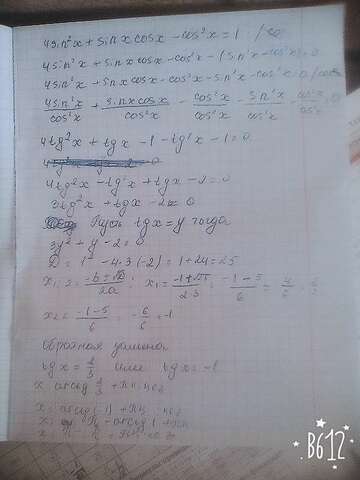 4sin²x + sinxcosx - cos²x = 1
4sin²x + sinxcosx - cos²x - 1(sin²x - cos²x) = 0
4sin²x + sinxcosx - cos²x - sin²x - cos²x = 0 / cos²x
4sin²x/cos²x + sinxcosx/cos²x - cos²x/cos²x - sin²x/cos²x - cos²x/cos²x = 0
4tg²x + tgx - 1 - tg²x - 1 = 0
4tg²x - tg²x + tgx - 2 = 0
3tg²x + tgx - 2 = 0
Пусть tgx = y тогда
3y² + y - 2 = 0
D = 1² - 4·3·(-2) = 1 + 24 = 25
x₁,₂ = -b±√D/2a ; x₁ = -1+√25/2·3 = -1-5/6 = 4/6 = 2/3
x₂ = -1-5/6 = -6/6 = -1
обратная замена
tgx = 2/3 или tgx = -1
x = arctg 2/3 + πn; n∈z
x = arctg(-1) + πn; n∈z
B612